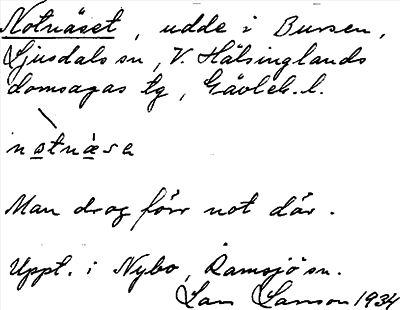 Notnäset, udde i Bursen,
Ljusdals sn, V. Hälsinglands
domsagas tg, Gävleb. l.
nọtnæ̣sa
Man drog förr not där.
Uppt. i Nybo, Ramsjö sn.
Lars Larsson 1934